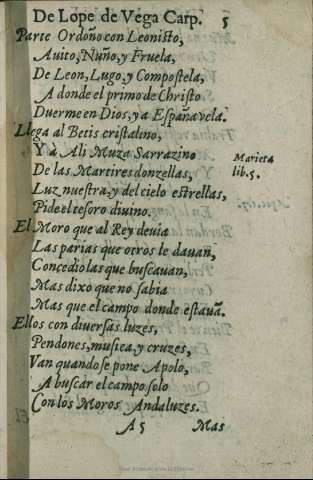 De Lope de Vega Carp. 5
Parte Ordoño con Leonisto,
Auito, Nuño, y Fruela,
De Leon, Lugo, y Compostela,
A donde el primo de Christo
Duerme en Dios, ya España vela.
Llega al Betis cristalino,
Y à Ali Muza Sarrazino
De las Martires donzellas,
Luz nuestra, y del cielo estrellas,
Pide el tesoro diuino.
Marieta
lib. 5.
El Moro que al Rey deuia
Las parias que otros le dauan,
Concedio las que buscauan,
Mas dixo que no sabia
Mas que el campo donde estauã.
Ellos con diuersas luzes,
Pendones, musica, y cruzes,
Van quando se pone Apolo,
A buscar el campo solo
Con los Moros Andaluzes.
A 5 Mas